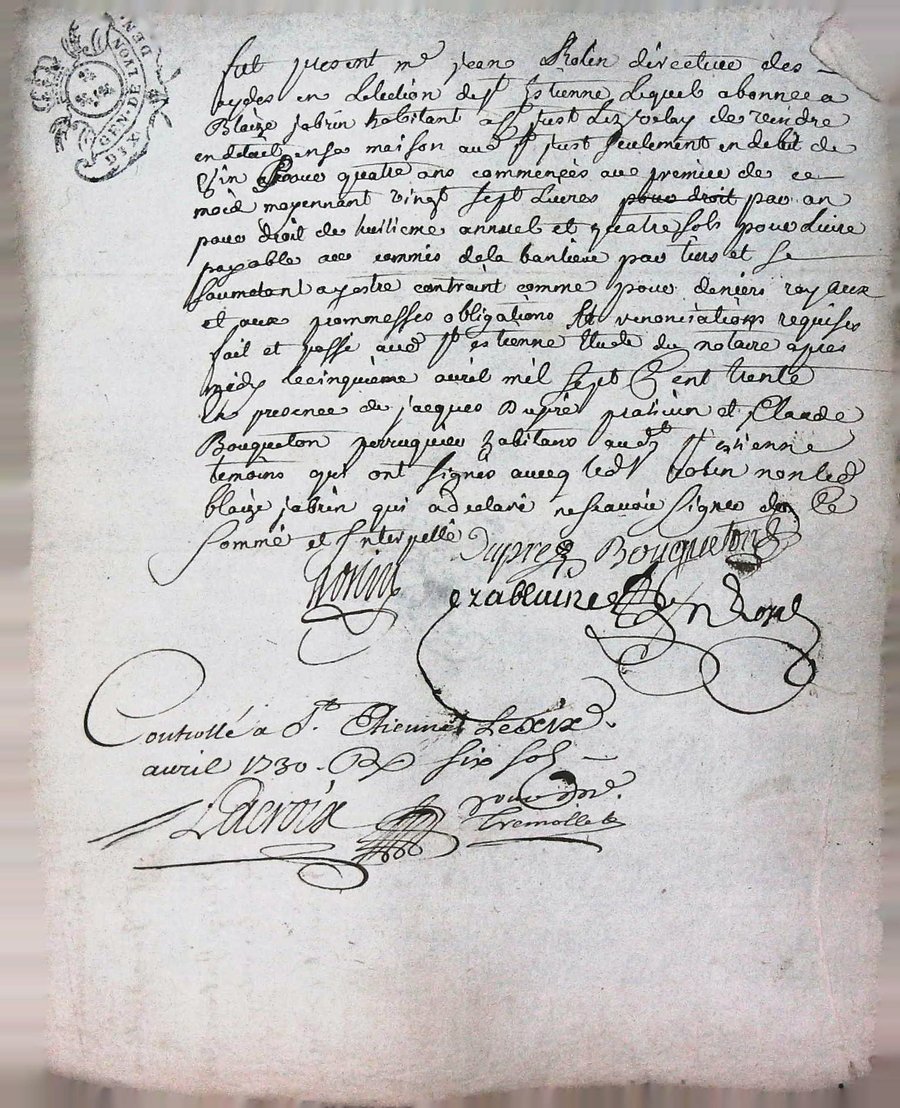 GEN. DE LYON
DIX DEN.
fut present me jean Rolin directeur des
aydes en Lelection de st Estienne Lequel abonne a
Blaize jabrin habitant a st just Lez velay de vendre
en detail en sa maison aud st just seulement en debit de
vin pour quatre ans commencés au premier de ce
mois moyennant vingt sept Livres pour droit par an
pour droit de huitieme annuel et quatre sols pour Livre
payable au commis de la banlieue par tiers et se
soumetant a y estre contraint comme pour deniers royaux
et aux prommesses obligations et renonciations requises
fait et passé aud st estienne Etude du notaire apres
midy le cinquieme avril mil sept Cent trente
En presence de jacques Dupré praticien et Claude
Bouqueton perruquier habitans aud st estienne
temoins qui ont signés avecq led sr Rolin non led
blaize jabrin qui a declaré ne scavoir signer de ce
sommé et Interpellé
Rolin Dupré Bouqueton
Controllé a St. Etienne Le dix
avril 1730. Rx six sols
Lacroix
pour me.
Tremollet